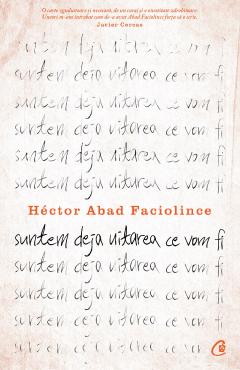 "O carte zguduitoare și necesară, de un curaj și o onestitate zdrobitoare.
Uneori m-am întrebat cum de-a avut Abad Faciolince forța să o scrie."
Javier Cercas
suntem deja uitarea ce vom fi
suntem deja uitarea ce vom fi
suntem deja uitarea ce vom fi
suntem deja uitarea ce vom fi
suntem deja uitarea ce vom fi
suntem deja uitarea ce vom fi
Héctor Abad Faciolince
suntem deja uitarea ce vom fi
suntem deja uitarea ce vom fi
suntem deja uitarea ce vom fi
suntem deja uitarea ce vom fi
suntem deja uitarea ce vom fi